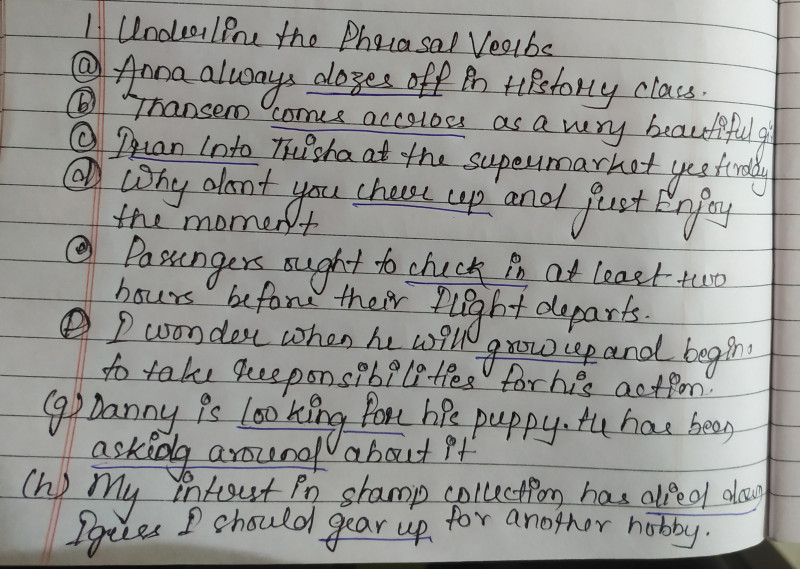 1. Underline the Phrasal Verbs
(a) Anna always dozes off in History class.
(b) Thansem comes accross as a very beautiful gi
(c) I ran into Trisha at the supermarket yesterday
(d) Why dont you cheer up and just Enjoy
the moment
(e) Passengers ought to check in at least two
hours before their flight departs.
(f) I wonder when he will grow up and begin
to take responsibilities for his action.
(g) Danny is looking for his puppy. He has been
asking around about it
(h) My interest in stamp collection has died down
I gues I should gear up for another hobby.